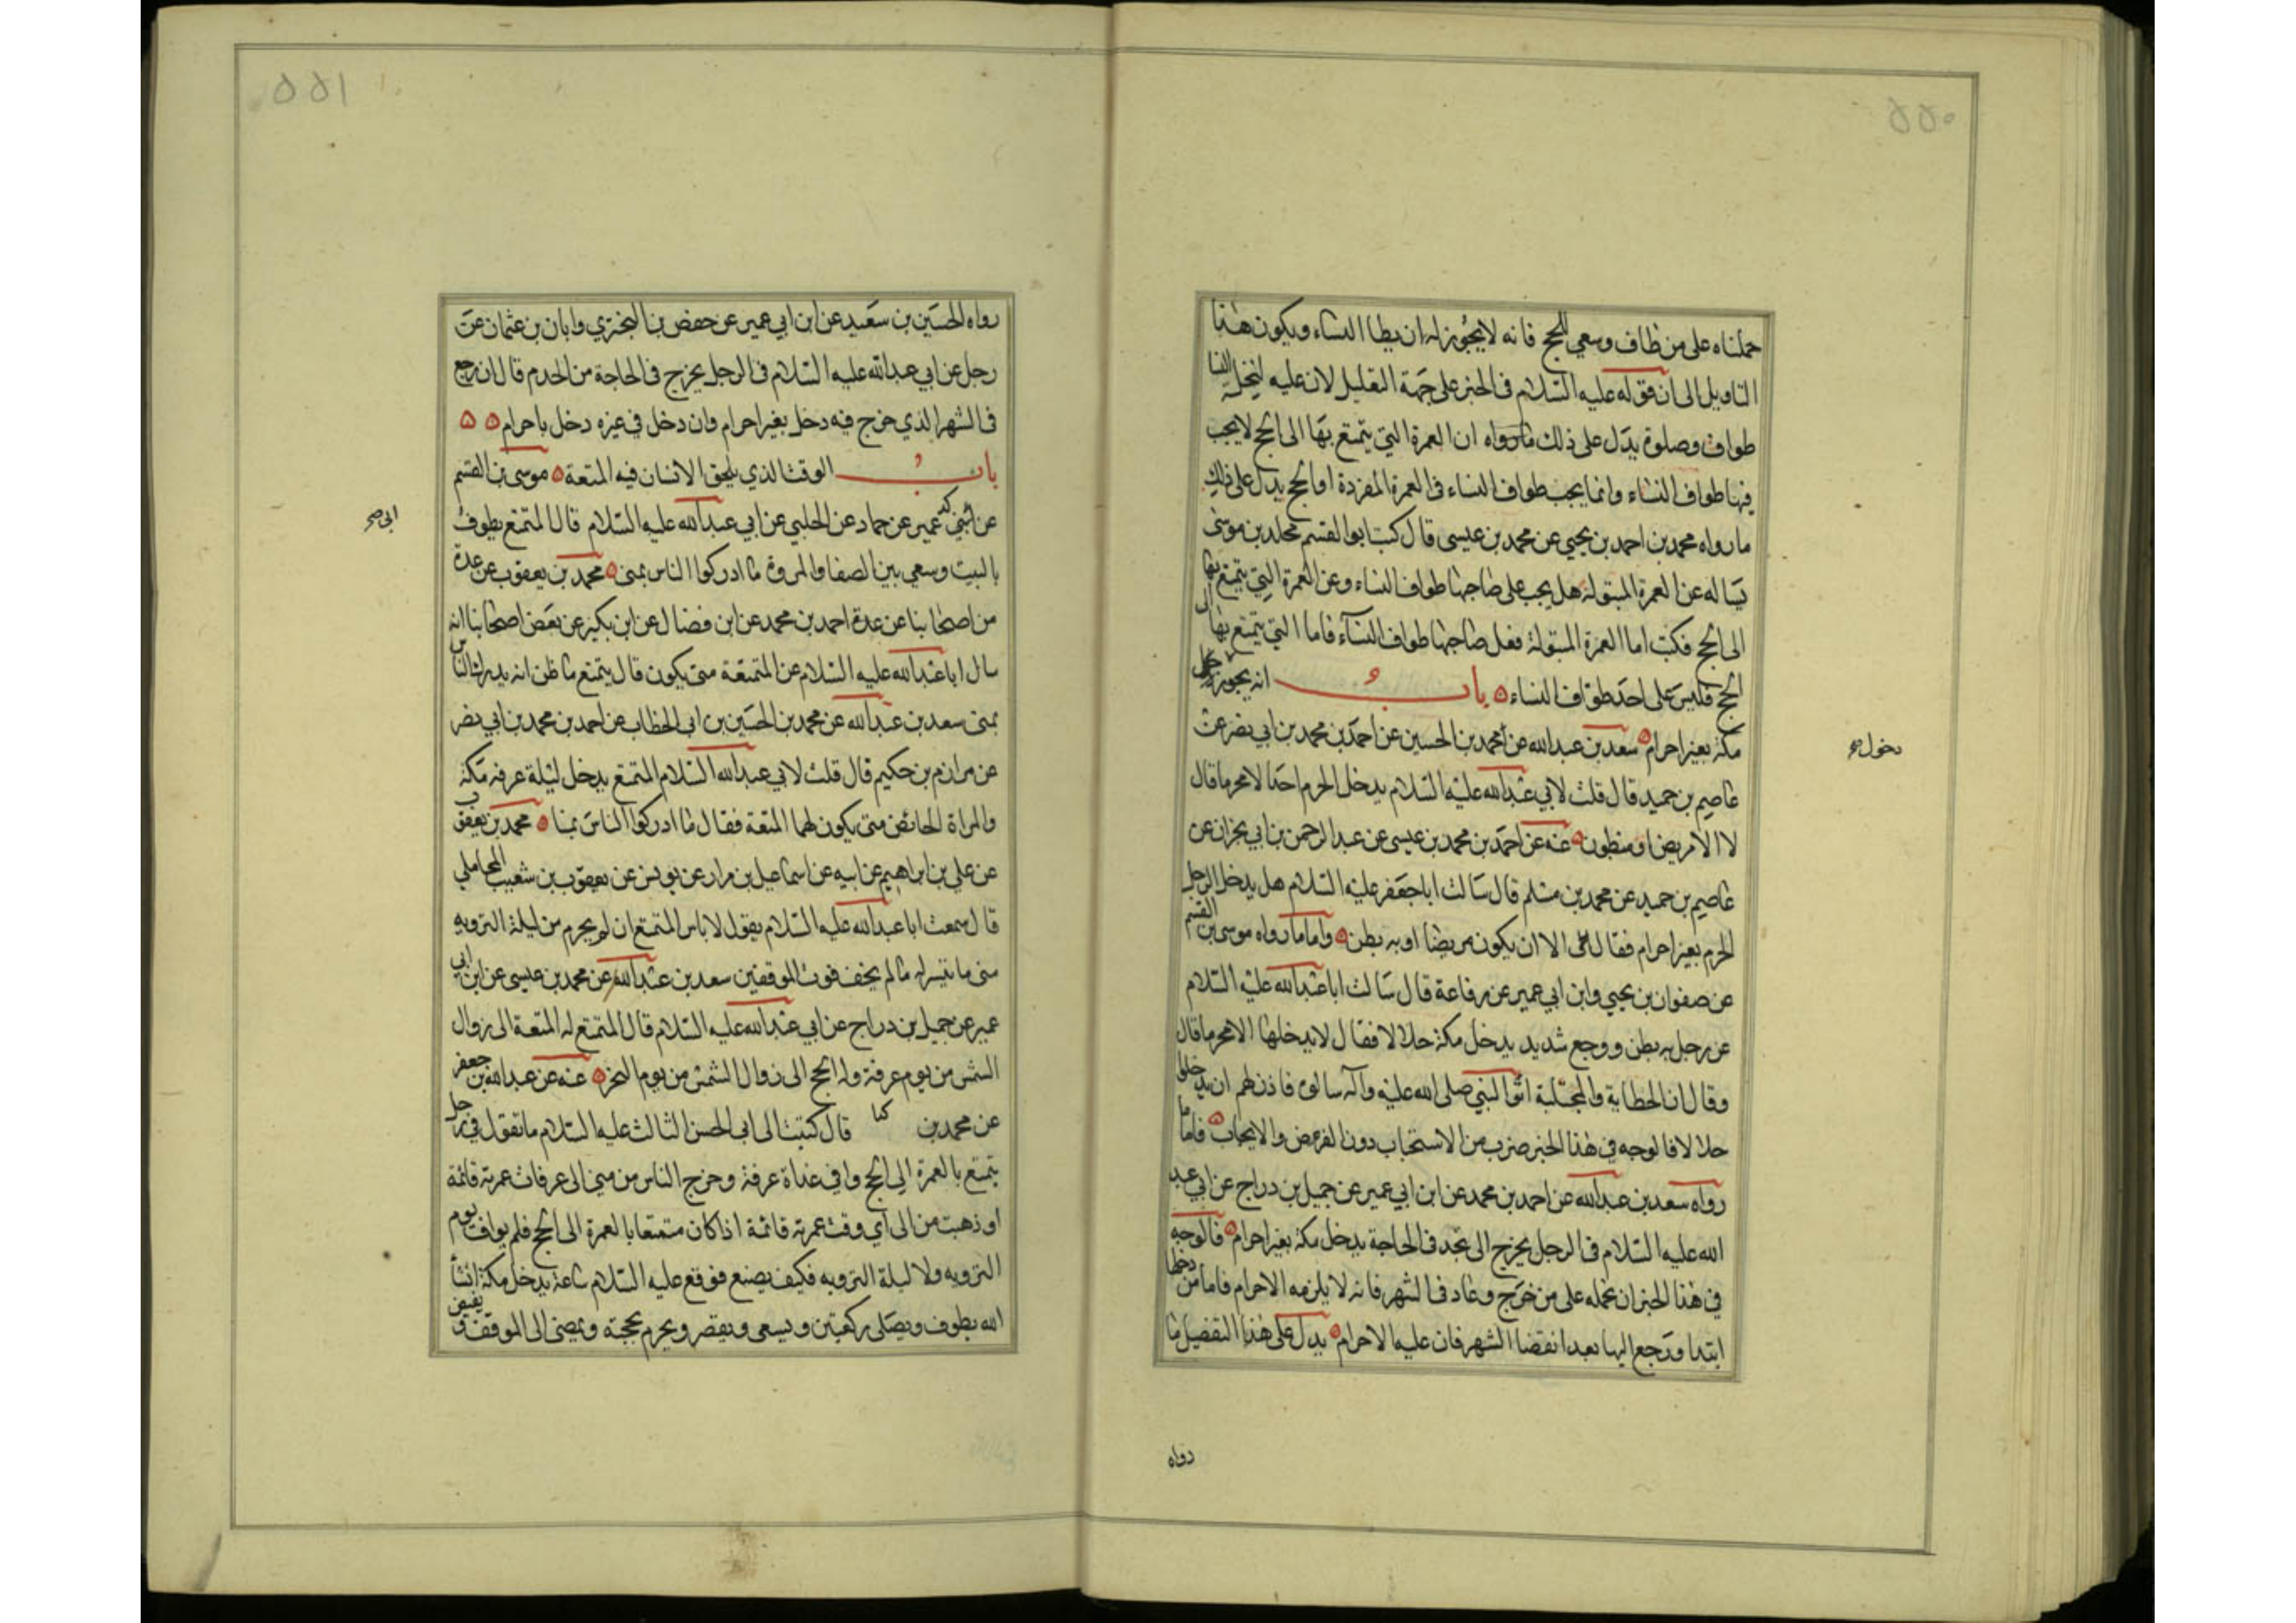 ٥٥٠
حملناه على من طاف وسعى للحج فانه لا يجوز له ان يطا النساء ويكون هذا
التاويل الى ان قوله عليه السلام في الخبر على جهة التعليل لان عليه لتحله النسا
طواف وصلوة يدل على ذلك ما رواه ان العمرة التي يتمتع بها الى الحج لا يجب
فيها طواف النساء وانما يجب طواف النساء في العمرة المفردة او الحج يدل على ذلك
ما رواه محمد بن احمد بن يحيى عن محمد بن عيسى قال كتب ابو القسم مخلد بن موسى
يساله عن العمرة المبتولة هل يجب على صاحبها طواف النساء وعن العمرة التي يتمتع بها
الى الحج فكتب اما العمرة المبتولة فعلى صاحبها طواف النساء فاما التي يتمتع بها الى
الحج فليس على احد طواف النساء ٥ باب انه يجوز
دخول صح
مكة بغير احرام ٥ سعد بن عبد الله عن محمد بن الحسين عن احمد بن محمد بن ابي نصر عن
عاصم بن حميد قال قلت لابي عبد الله عليه السلام يدخل الحرم احدا لا محرما قال
لا الا مريض او مبطون ٥ عنه عن احمد بن محمد بن عيسى عن عبد الرحمن بن ابي نجران عن
عاصم بن حميد عن محمد بن مسلم قال سالت ابا جعفر عليه السلام هل يدخل الرجل
الحرم بغير احرام فقال لا الا ان يكون مريضا او به بطن ٥ واما ما رواه موسى بن القسم
عن صفوان بن يحيى وابن ابي عمير عن رفاعة قال سالت ابا عبد الله عليه السلام
عن رجل به بطن ووجع شديد يدخل مكة حلالا فقال لا يدخلها الا محرما قال
وقال ان الحطابة والمجتلبة اتوا النبي صلى الله عليه وآله سالوه فاذن لهم ان يدخلوا
حلالا فالوجه في هذا الخبر ضرب من الاستحباب دون الفرض والايجاب ٥ فاما ما
رواه سعد بن عبد الله عن احمد بن محمد عن ابن ابي عمير عن جميل بن دراج عن ابي عبد
الله عليه السلام في الرجل يخرج الى نجد في الحاجة يدخل مكة بغير احرام ٥ فالوجه
في هذا الخبر ان نحمله على من خرج وعاد في الشهر فانه لا يلزمه الاحرام فاما من دخلها
ابتدا ورجع اليها بعد انقضا الشهر فان عليه الاحرام ٥ يدل على هذا التفضيل ما
رواه
٥٥١
رواه الحسين بن سعيد عن ابن ابي عمير عن حفص بن البختري وابان بن عثمان عن
رجل عن ابي عبد الله عليه السلام في الرجل يخرج في الحاجة من الحرم قال ان رجع
في الشهر الذي خرج فيه دخل بغير احرام وان دخل في غيره دخل باحرام ٥ ٥
باب الوقت الذي يلحق الانسان فيه المتعة ٥ موسى بن القسم
ابي صح
عن عمير عن حماد عن الحلبي عن ابي عبد الله عليه السلام قال المتمتع يطوف
بالبيت وسعي بين الصفا والمروة ما ادركوا الناس بمنى ٥ محمد بن يعقوب عن عدة
من اصحابنا عن عدة احمد بن محمد عن ابن فضال عن ابن بكير عن بعض اصحابنا انه
سال ابا عبد الله عليه السلام عن المتمتعة متى يكون قال يتمتع ما ظن انه يدرك الناس
بمنى سعد بن عبد الله عن محمد بن الحسين بن ابي الخطاب عن احمد بن محمد بن ابي نصر
عن مرازم بن حكيم قال قلت لابي عبد الله السلام المتمتع يدخل ليلة عرفة مكة
والمراة الحائض متى يكون لهما المتعة فقال ما ادركوا الناس بمنا ٥ محمد بن يعقوب
عن علي بن ابراهيم عن ابيه عن اسماعيل بن مرار عن يونس عن يعقوب بن شعيب المحاملي
قال سمعت ابا عبد الله عليه السلام يقول لا باس المتمتع ان لم يحرم من ليلة التروية
متى ما تيسر له ما لم يخف فوت الموقفين سعد بن عبد الله عن محمد بن عيسى عن ابن ابي
عمير عن جميل بن دراج عن ابي عبد الله عليه السلام قال المتمتع له المتعة الى زوال
الشمس من يوم عرفة وله الحج الى زوال الشمس من يوم النحر ٥ عنه عن عبد الله بن جعفر
عن محمد بن كذا قال كتبت الى ابي الحسن الثالث عليه السلام ما تقول في رجل
يتمتع بالعمرة الى الحج وافى غداة عرفة وخرج الناس من منى الى عرفات عمرته قائمة
او ذهبت من الى اي وقت عمرته قائمة اذا كان متمتعا بالعمرة الى الحج فلم يواف يوم
التروية ولا ليلة التروية فكيف يصنع فوقع عليه السلام ساعة يدخل مكة انشأ
الله يطوف ويصلى ركعتين ويسعى ويقصر ويحرم بحجته ويمضي الى الموقف ويفيض